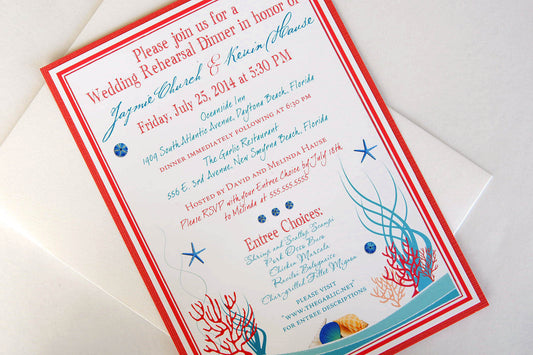 Please join us for a
Wedding Rehearsal Dinner in honor of
Jaymie Church & Kevin Hause
Friday, July 25, 2014 at 5:30 PM
Oceanside Inn
1909 South Atlantic Avenue, Daytona Beach, Florida
DINNER IMMEDIATELY FOLLOWING AT 6:30 PM
The Garlic Restaurant
556 E. 3rd Avenue, New Smyrna Beach, Florida
HOSTED BY DAVID AND MELINDA HAUSE
Please RSVP with your Entree Choice by July 18th
to Melinda at 555.555.5555
Entree Choices:
Shrimp and Scallop Scampi
Pork Osso Buco
Chicken Marsala
Ravioli Bolognaise
Char-grilled Fillet Mignon
PLEASE VISIT
"WWW.THEGARLIC.NET"
FOR ENTREE DESCRIPTIONS